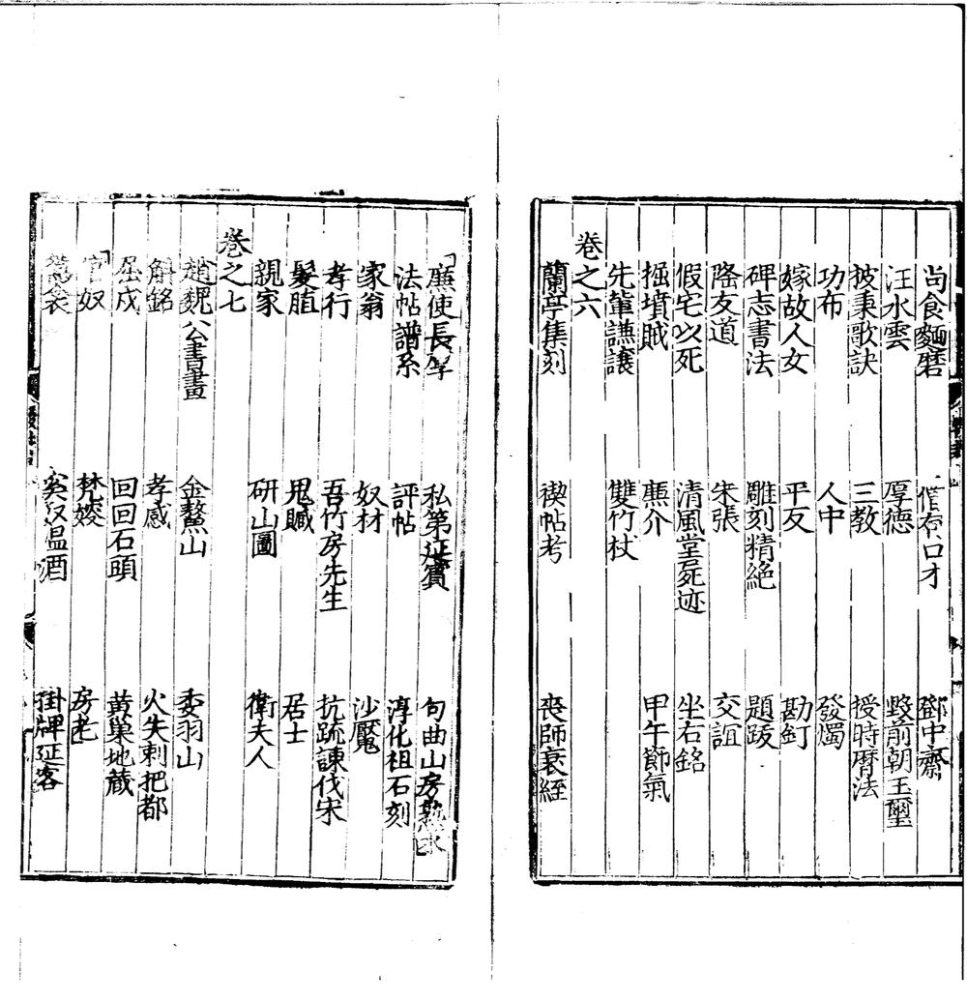 尚食麵磨 僧有口才 鄧中齋
汪水雲 厚德 發前朝玉璽
披秉歌訣 三教 授時曆法
功布 人中 發燭
嫁故人女 平反 勘釘
碑志書法 雕刻精絶 題跋
隆友道 朱張 交誼
假宅以死 清風堂屍迹 坐右銘
掘墳賊 廉介 甲午節氣
先輩謙讓 雙竹杖
卷之六
蘭亭集刻 禊帖考 喪師衰絰
廉使長厚 私第延賓 句曲山房熟水
法帖譜系 評帖 淳化祖石刻
家翁 奴材 沙魘
孝行 吾竹房先生 抗疏諫伐宋
髮脂 鬼贓 居士
親家 研山圖 衛夫人
卷之七
趙魏公書畫 金鰲山 委羽山
斛銘 孝感 火失刺把都
屈戍 回回石頭 黄巢地藏
官奴 梵嫂 房老
奚奴温酒 掛牌延客